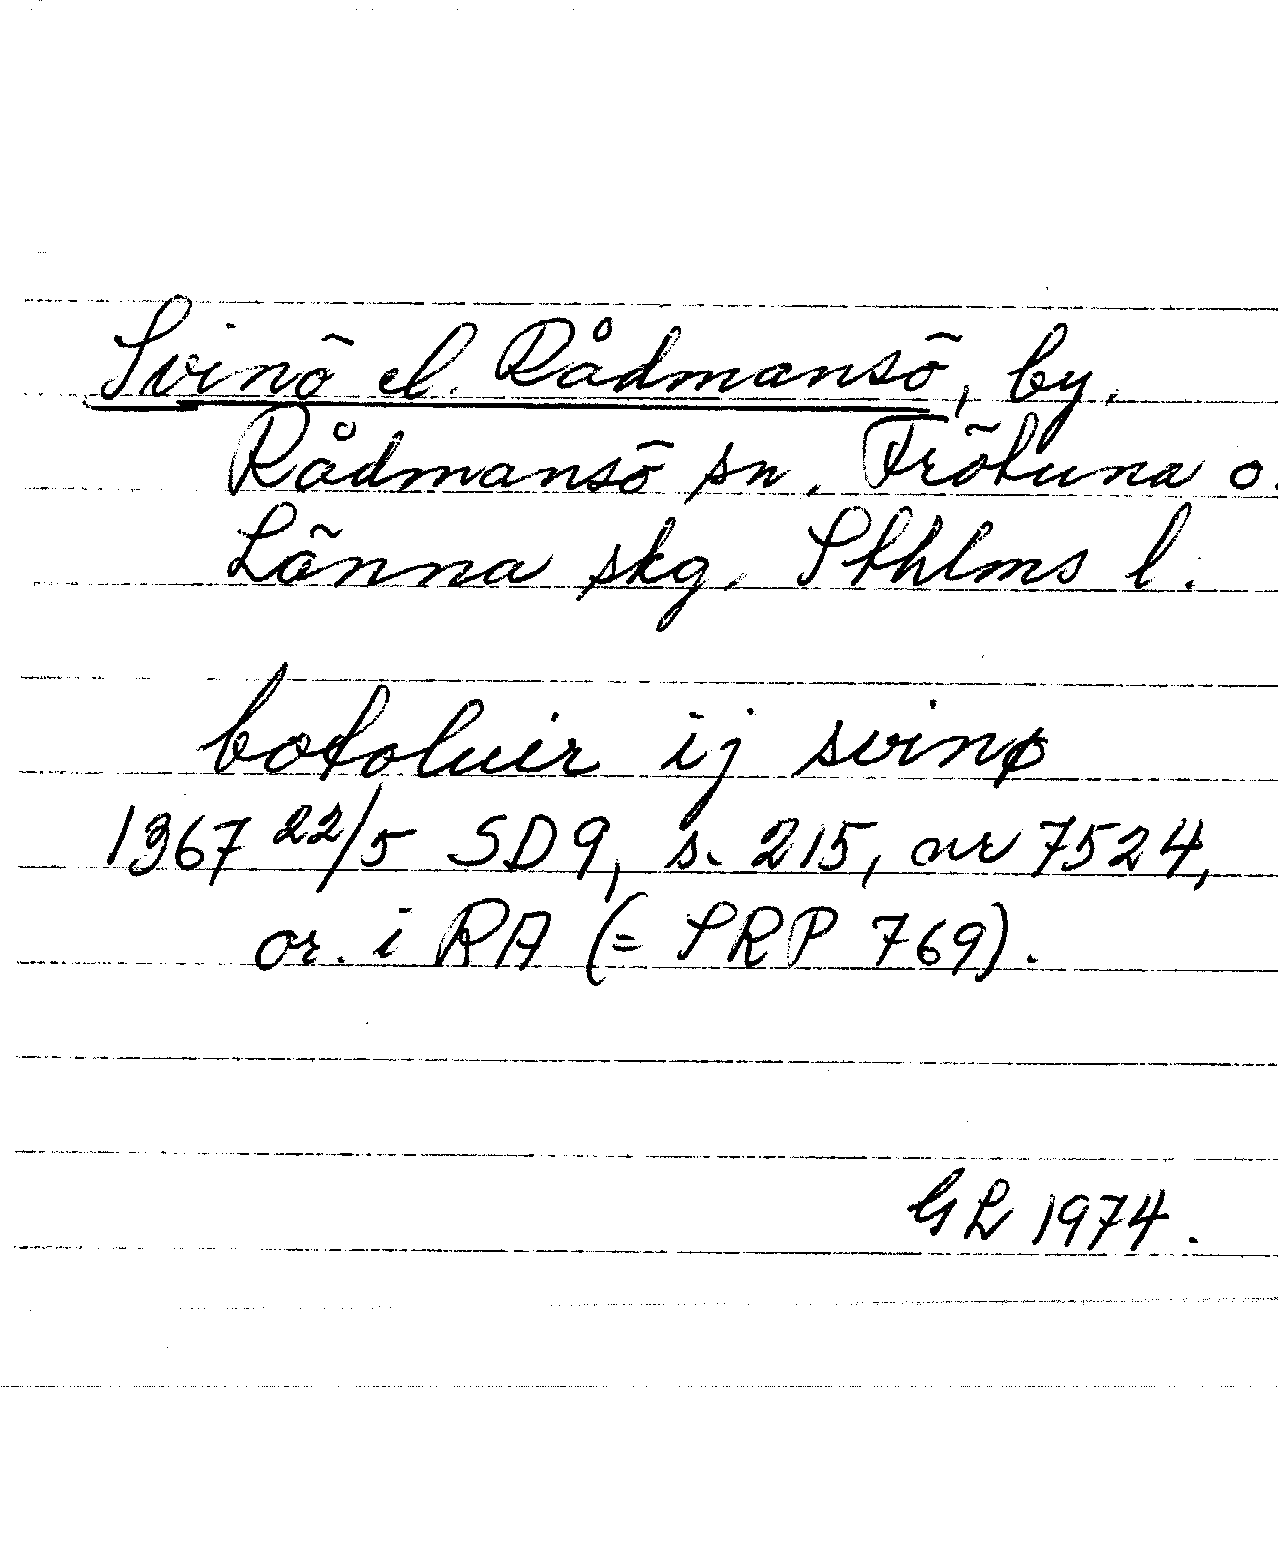 Svinö el. Rådmansö, by,
Rådmansö sn, Frötuna o.
Länna skg, Sthlms l.
botoluir ij svinø
1367 22/5 SD9, s. 215, nr 7524,
or. i RA (= SRP 769).
GL 1974.